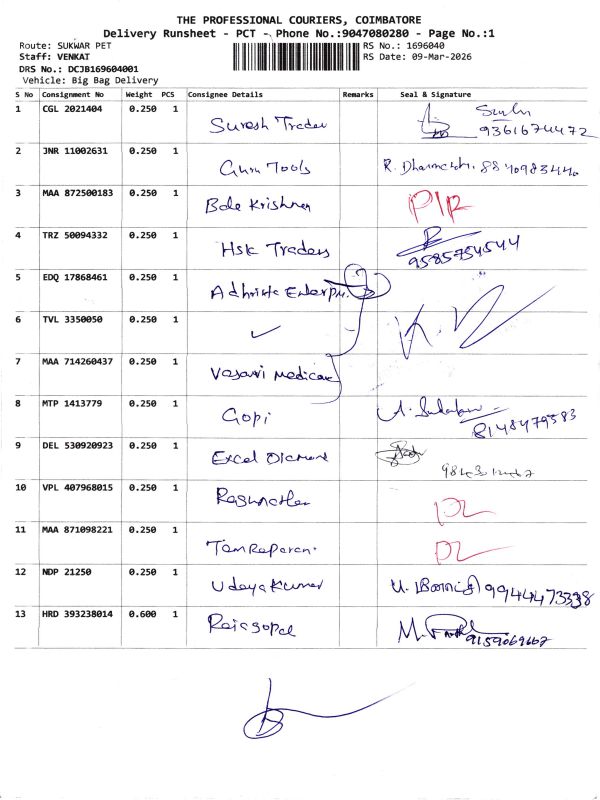 THE PROFESSIONAL COURIERS, COIMBATORE
Delivery Runsheet - PCT - Phone No.:9047080280 - Page No.:1
Route: SUKWAR PET
Staff: VENKAT
DRS No.: DCJB169604001
Vehicle: Big Bag Delivery
RS No.: 1696040
RS Date: 09-Mar-2026
S No Consignment No Weight PCS Consignee Details Remarks Seal & Signature
1 CGL 2021404 0.250 1 Suresh Trader 9361674472
2 JNR 11002631 0.250 1 Guru Tools R. 8870983440
3 MAA 872500183 0.250 1 Bala Krishnan
4 TRZ 50094332 0.250 1 Hsk Traders 9585754544
5 EDQ 17868461 0.250 1
6 TVL 3350050 0.250 1 ✓
7 MAA 714260437 0.250 1 Vasavi Medical
8 MTP 1413779 0.250 1 Gopi 8148479583
9 DEL 530920923 0.250 1 Excel
10 VPL 407968015 0.250 1
11 MAA 871098221 0.250 1
12 NDP 21250 0.250 1 Udaya Kumar 9944473338
13 HRD 393238014 0.600 1 Rajagopal M. 9159069667